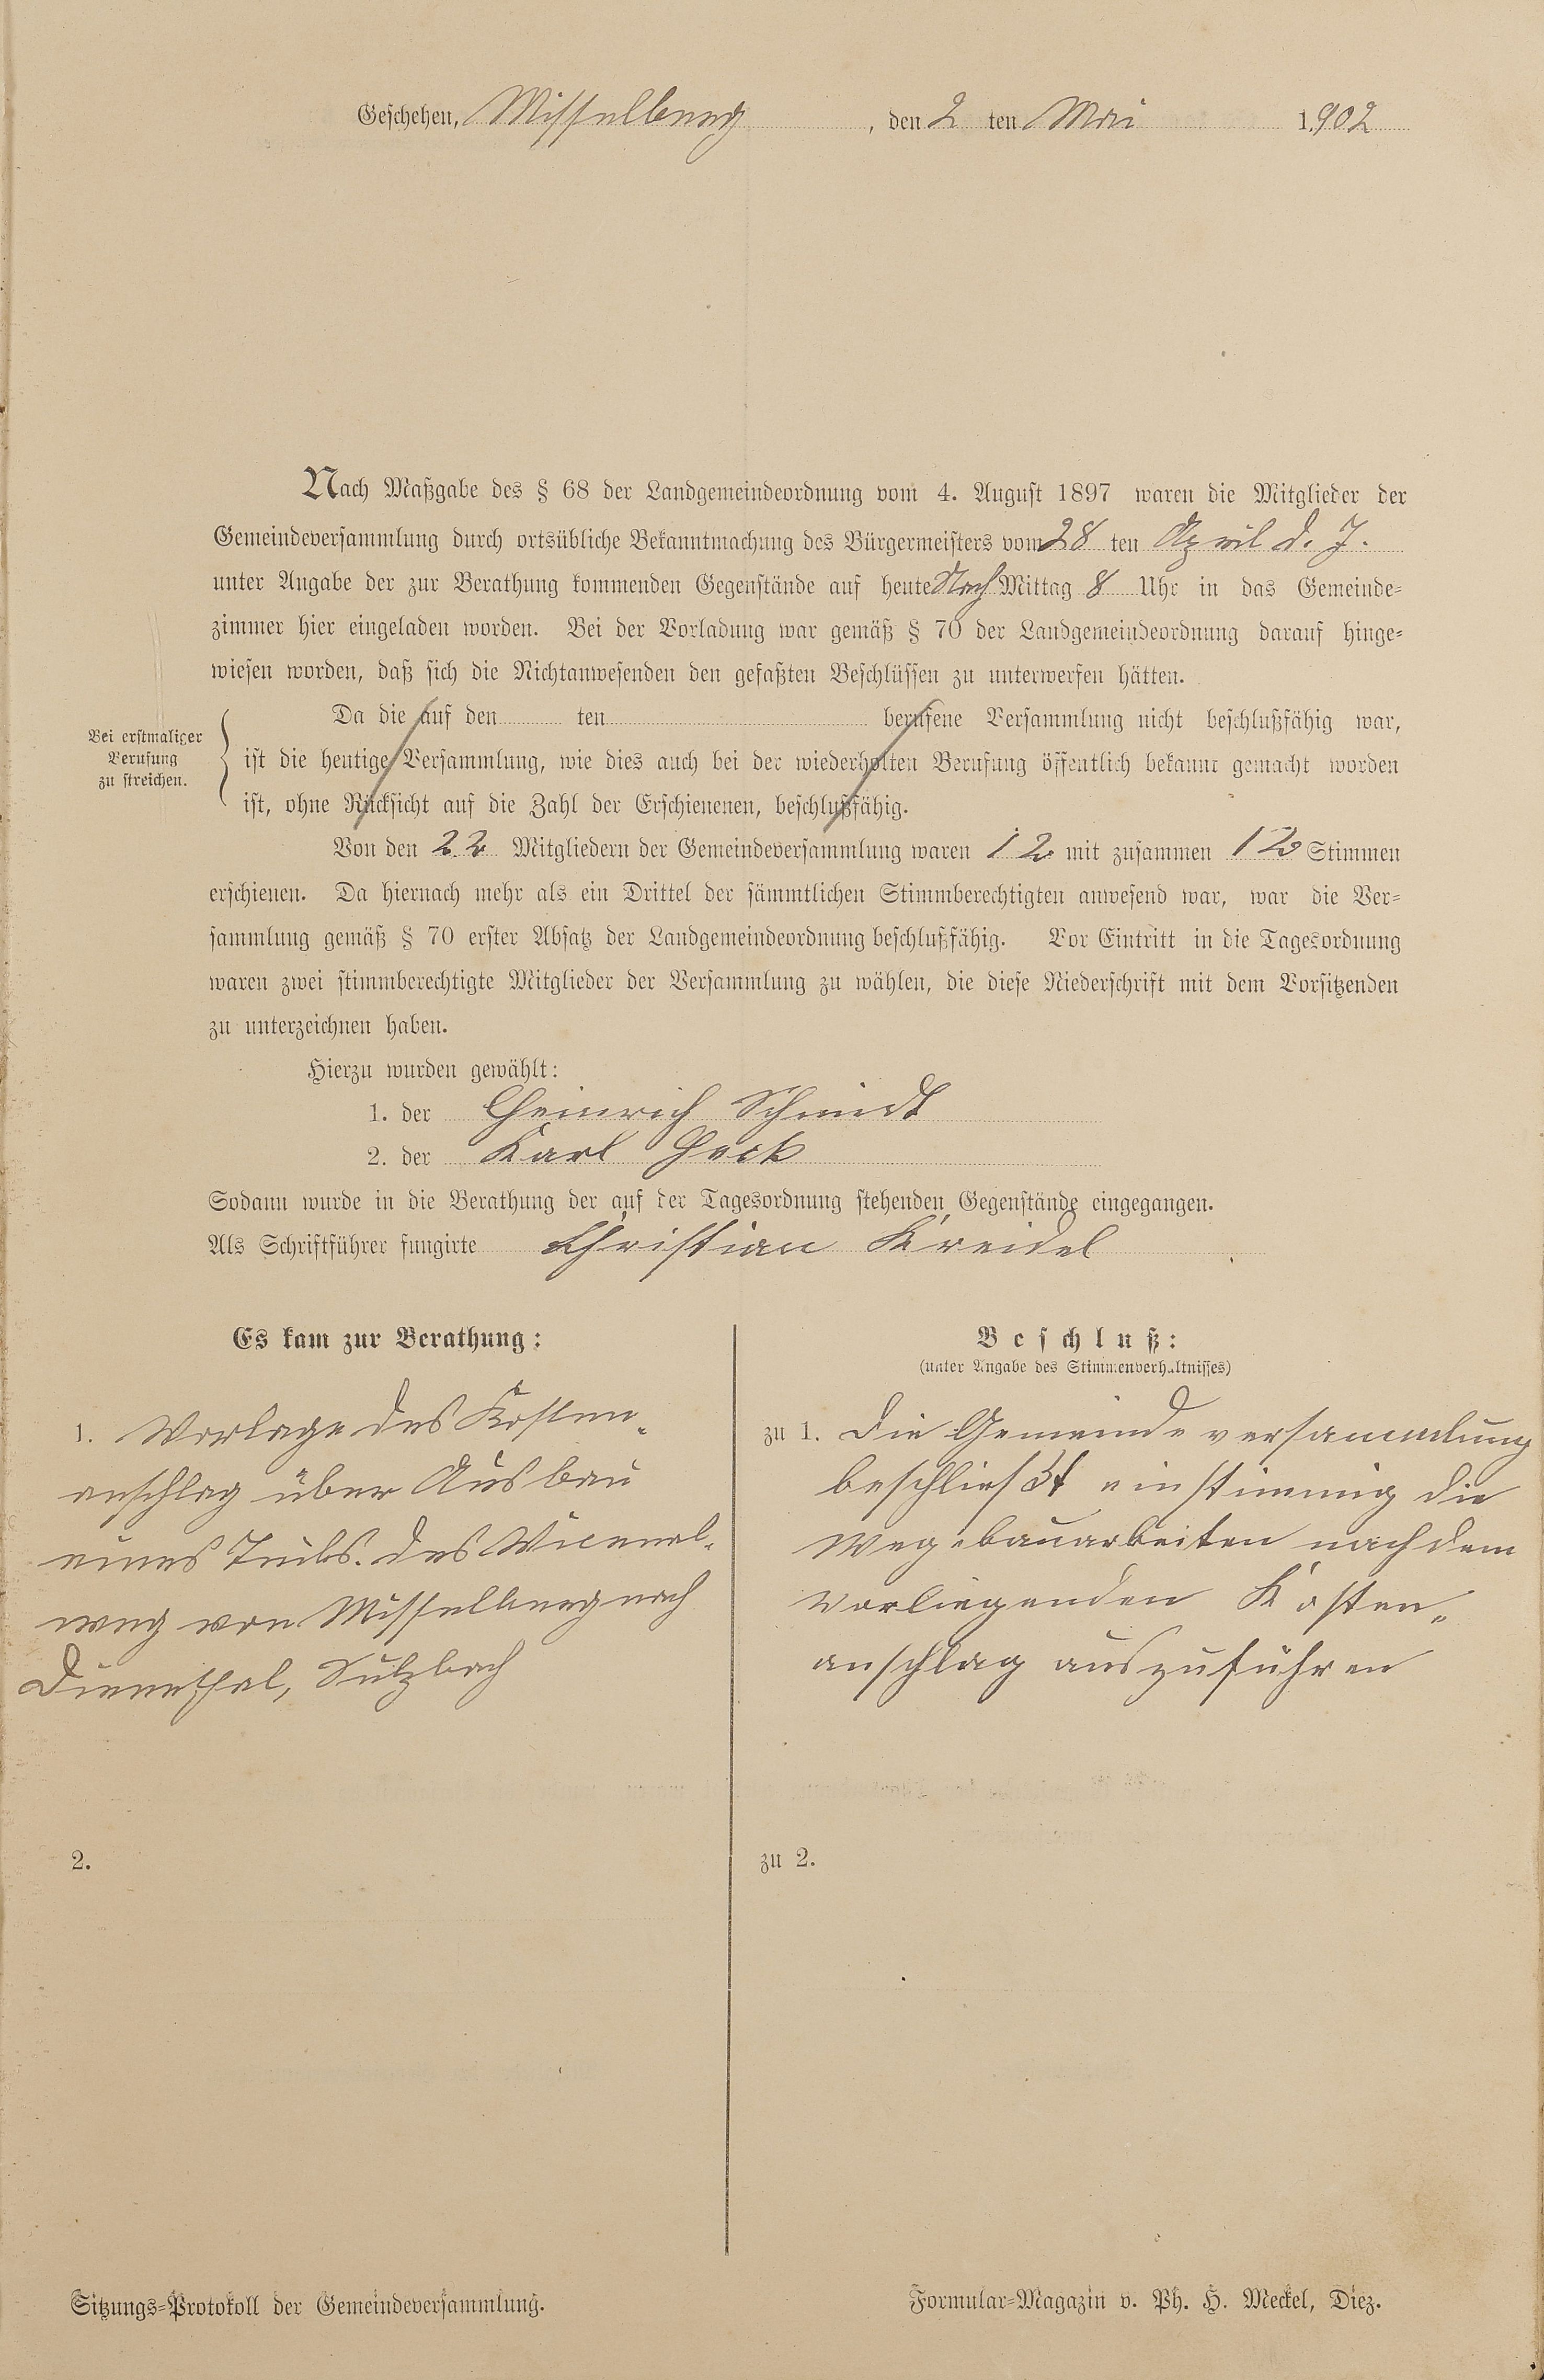 Geschehen, Misselberg, den 2 ten Mai 1902
Nach Maßgabe des § 68 der Landgemeindeordnung vom 4. August 1897 waren die Mitglieder der
Gemeindeversammlung durch ortsübliche Bekanntmachung des Bürgermeisters vom 28 ten April d. J.
unter Angabe der zur Berathung kommenden Gegenstände auf heute Nach Mittag 8 Uhr in das Gemeinde=
zimmer hier eingeladen worden. Bei der Vorladung war gemäß § 70 der Landgemeindeordnung darauf hinge=
wiesen worden, daß sich die Nichtanwesenden den gefaßten Beschlüssen zu unterwerfen hätten.
Bei erstmaliger
Berufung
zu streichen.
Da die auf den ten berufene Versammlung nicht beschlußfähig war,
ist die heutige Versammlung, wie dies auch bei der wiederholten Berufung öffentlich bekannt gemacht worden
ist, ohne Rücksicht auf die Zahl der Erschienenen, beschlußfähig.
Von den 22 Mitgliedern der Gemeindeversammlung waren 12 mit zusammen 12 Stimmen
erschienen. Da hiernach mehr als ein Drittel der sämmtlichen Stimmberechtigten anwesend war, war die Ver=
sammlung gemäß § 70 erster Absatz der Landgemeindeordnung beschlußfähig. Vor Eintritt in die Tagesordnung
waren zwei stimmberechtigte Mitglieder der Versammlung zu wählen, die diese Niederschrift mit dem Vorsitzenden
zu unterzeichnen haben.
Hierzu wurden gewählt:
1. der Heinrich Schmidt
2. der Karl
Sodann wurde in die Berathung der auf der Tagesordnung stehenden Gegenstände eingegangen.
Als Schriftführer fungirte Christian Kreidel
Es kam zur Berathung:
1. Vorlage des Kosten=
anschlag über Ausbau
eines Teils. des Vicenal=
weg von Misselberg nach
Dienethal, Sulzbach
2.
Beschluß:
(unter Angabe des Stimmenverhältnisses)
zu 1. Die Gemeinde versammlung
beschließt einstimmig die
Wegebauarbeiten nach dem
vorliegenden Kosten=
anschlag auszuführen
zu 2.
Sitzungs=Protokoll der Gemeindeversammlung.
Formular=Magazin v. Ph. H. Meckel, Diez.